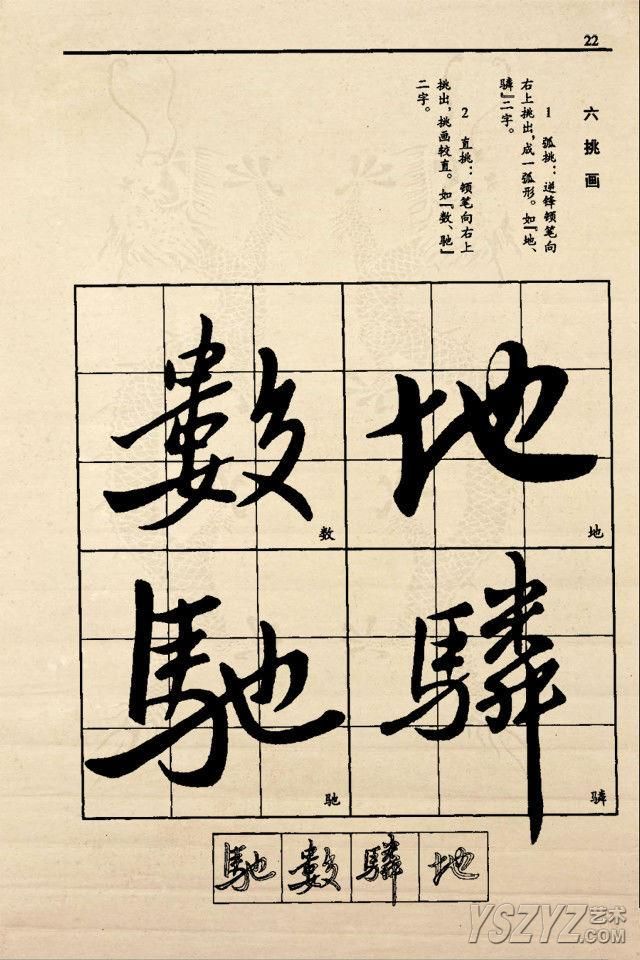 22
六 挑画
1 弧挑：逆锋顿笔向
右上挑出，成一弧形。如『地、
驎』二字。
2 直挑：顿笔向右上
挑出，挑画较直。如『数、驰』
二字。
地
地
驎
驎
數
数
馳
驰
馳 數 驎 地
YSZYZ艺术
.COM